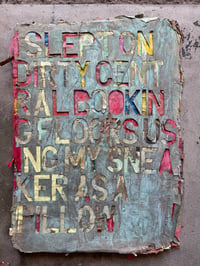 I SLEPT ON
DIRTY CENT
RAL BOOKIN
G FLOORS US
ING MY SNEA
KER AS A
PILLOW